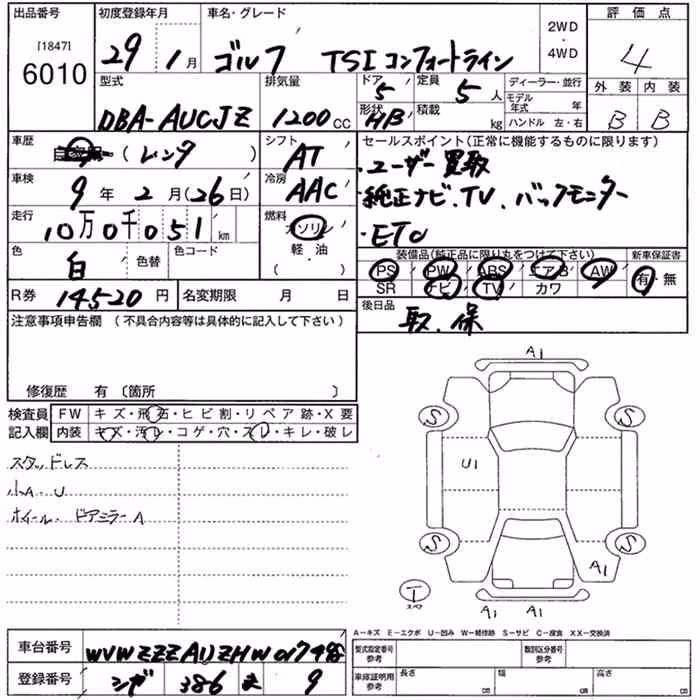 出品番号
[1847]
6010
初度登録年月
29 1月
車名・グレード
ゴルフ TSI コンフォートライン
2WD
・
4WD
評価点
4
外装 内装
B B
型式
DBA-AUCJZ
排気量
1200 CC
ドア 5
形状 HB
定員 5 人
積載 kg
ディーラー・並行
モデル年式 年
ハンドル 左・右
車歴
自家用 (レンタ)
シフト
AT
車検
9 年 2 月 (26 日)
冷房
AAC
走行
10万0千051 km
燃料
ガソリン
軽・油
( )
色
白
色替
色コード
R券 14520 円
名変期限 月 日
セールスポイント(正常に機能するものに限ります)
・ユーザー買取
・純正ナビ、TV、バックモニター
・ETC
装備品(純正品に限り丸をつけて下さい)
PS PW ABS エアB AW
SR ナビ TV カワ
新車保証書
有・無
後日品
取、保
注意事項申告欄 (不具合内容等は具体的に記入して下さい)
修復歴 有 〔箇所 〕
検査員記入欄
FW キズ・飛石・ヒビ割・リペア跡・X要
内装 キズ・汚レ・コゲ・穴・スレ・キレ・破レ
スタッドレス
小A・U
ホイール・ドアミラーA
A1
S S
U1
S S
A1
T
スペア
A1 A1
A-キズ E-エクボ U-凹み W-補修跡 S-サビ C-腐食 XX-交換済
車台番号
登録番号 386 ま 9
型式指定番号 参考
類別区分番号 参考
車庫証明用 参考
長さ cm 幅 cm 高さ cm